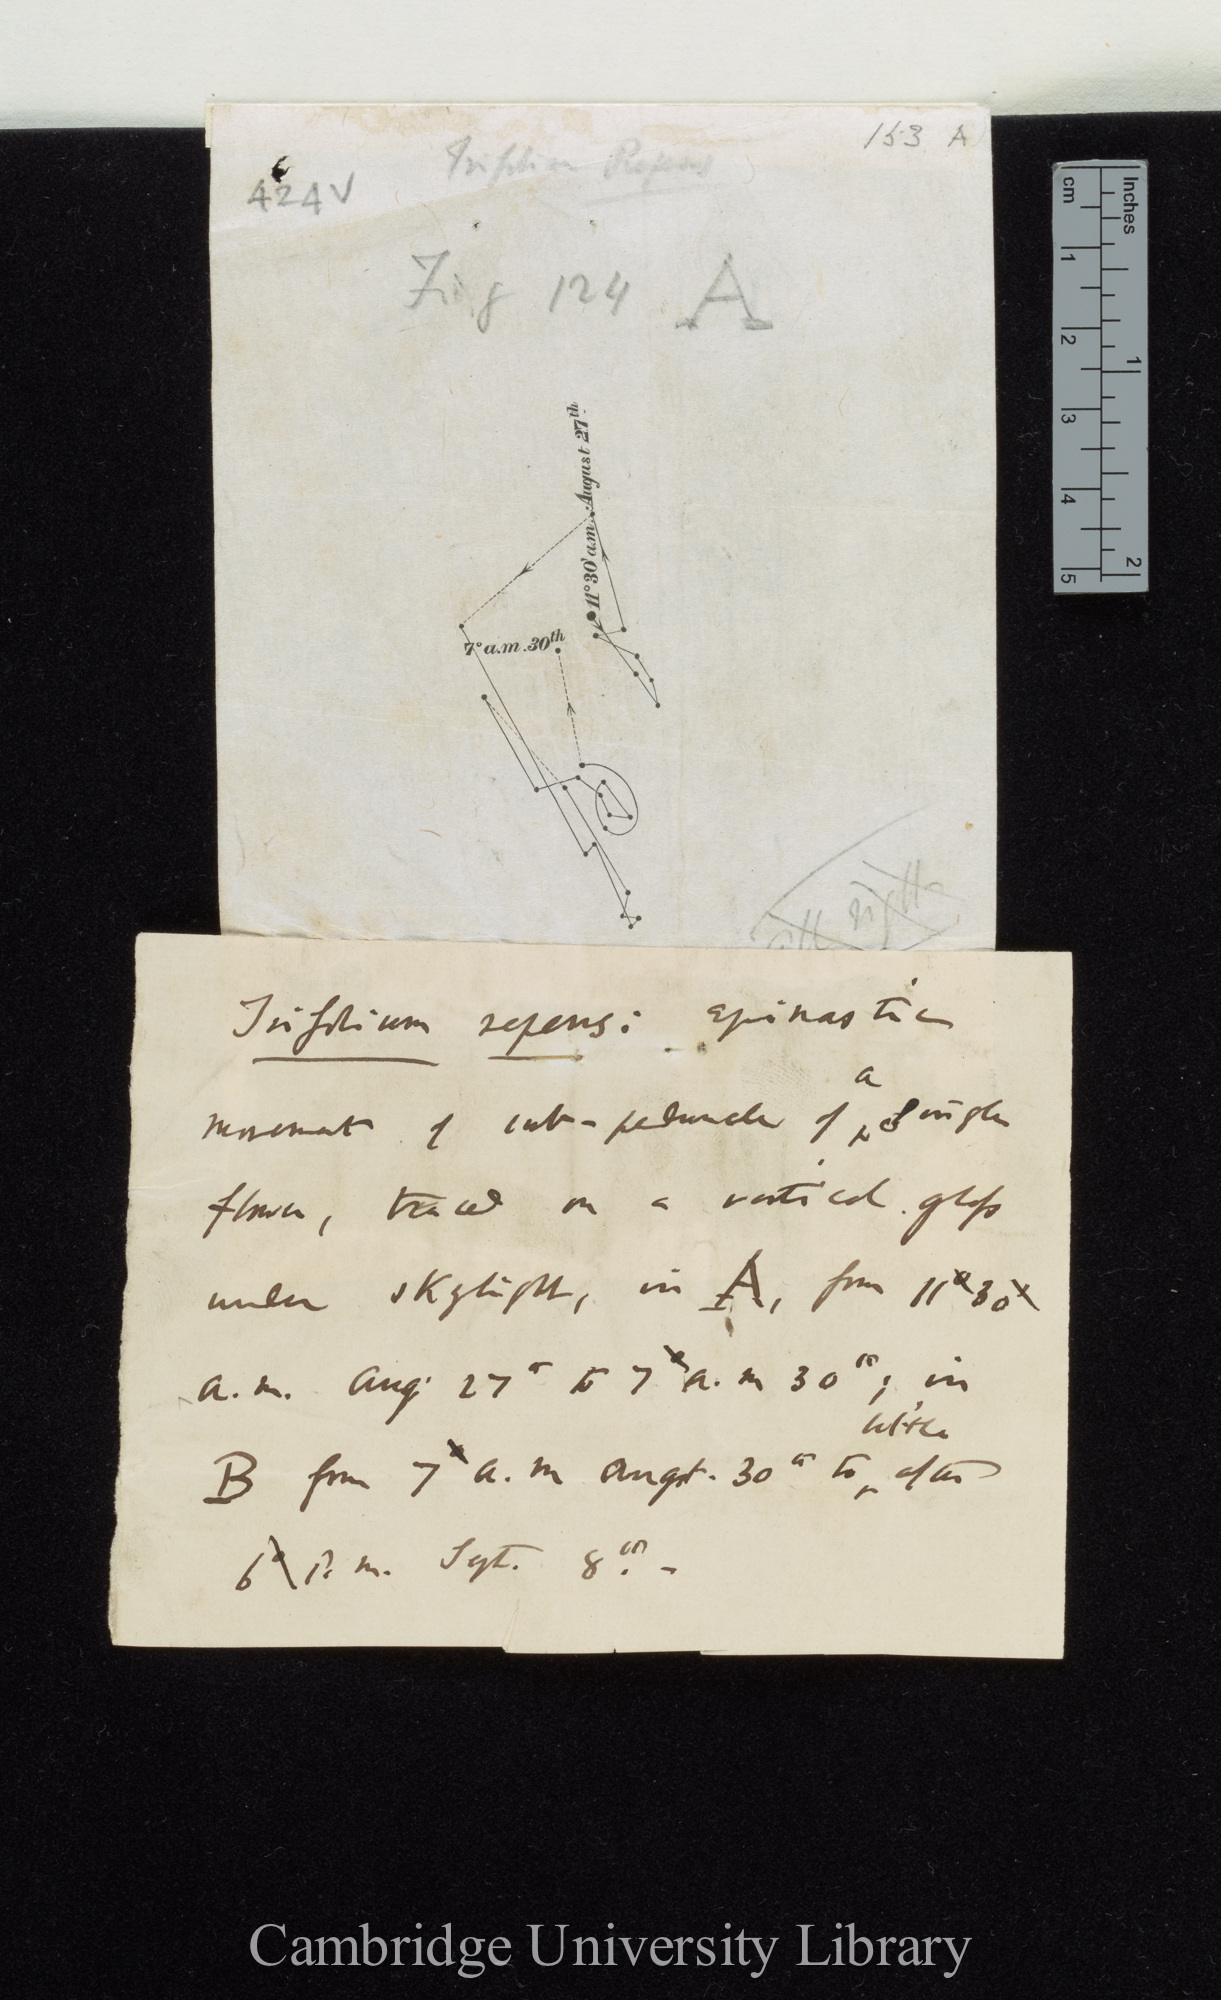 153 A
Trifolium Repens
424V
Fig 124 A
11° 30' a.m. August 27th
7° a.m. 30th
right
Trifolium repens: epinastic
movement of sub-peduncle of a single
flower, traced on a vertical glass
under skylight, in A, from 11° 30'
a.m. Aug. 27th to 7° a.m 30th; in
B from 7° a.m Augst. 30th to a little after
6° P.m. Sept. 8th. -
Inches
cm
1
2
3
4
5
1
2
Cambridge University Library